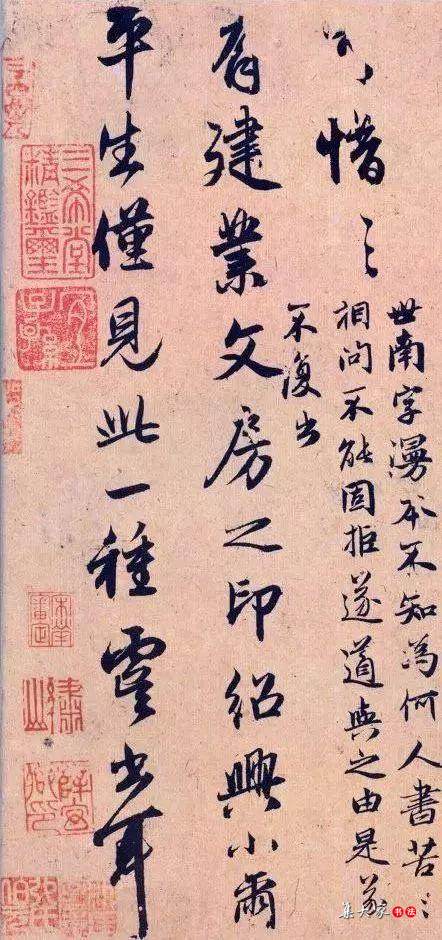 可惜〻
世南字漫本不知為何人書苦〻
相問不能固拒遂道與之由是遂
不復出
有建業文房之印紹興小爾
平生僅見此一種虞書耳
三希堂
精鑑璽
宜子孫
集大家 书法